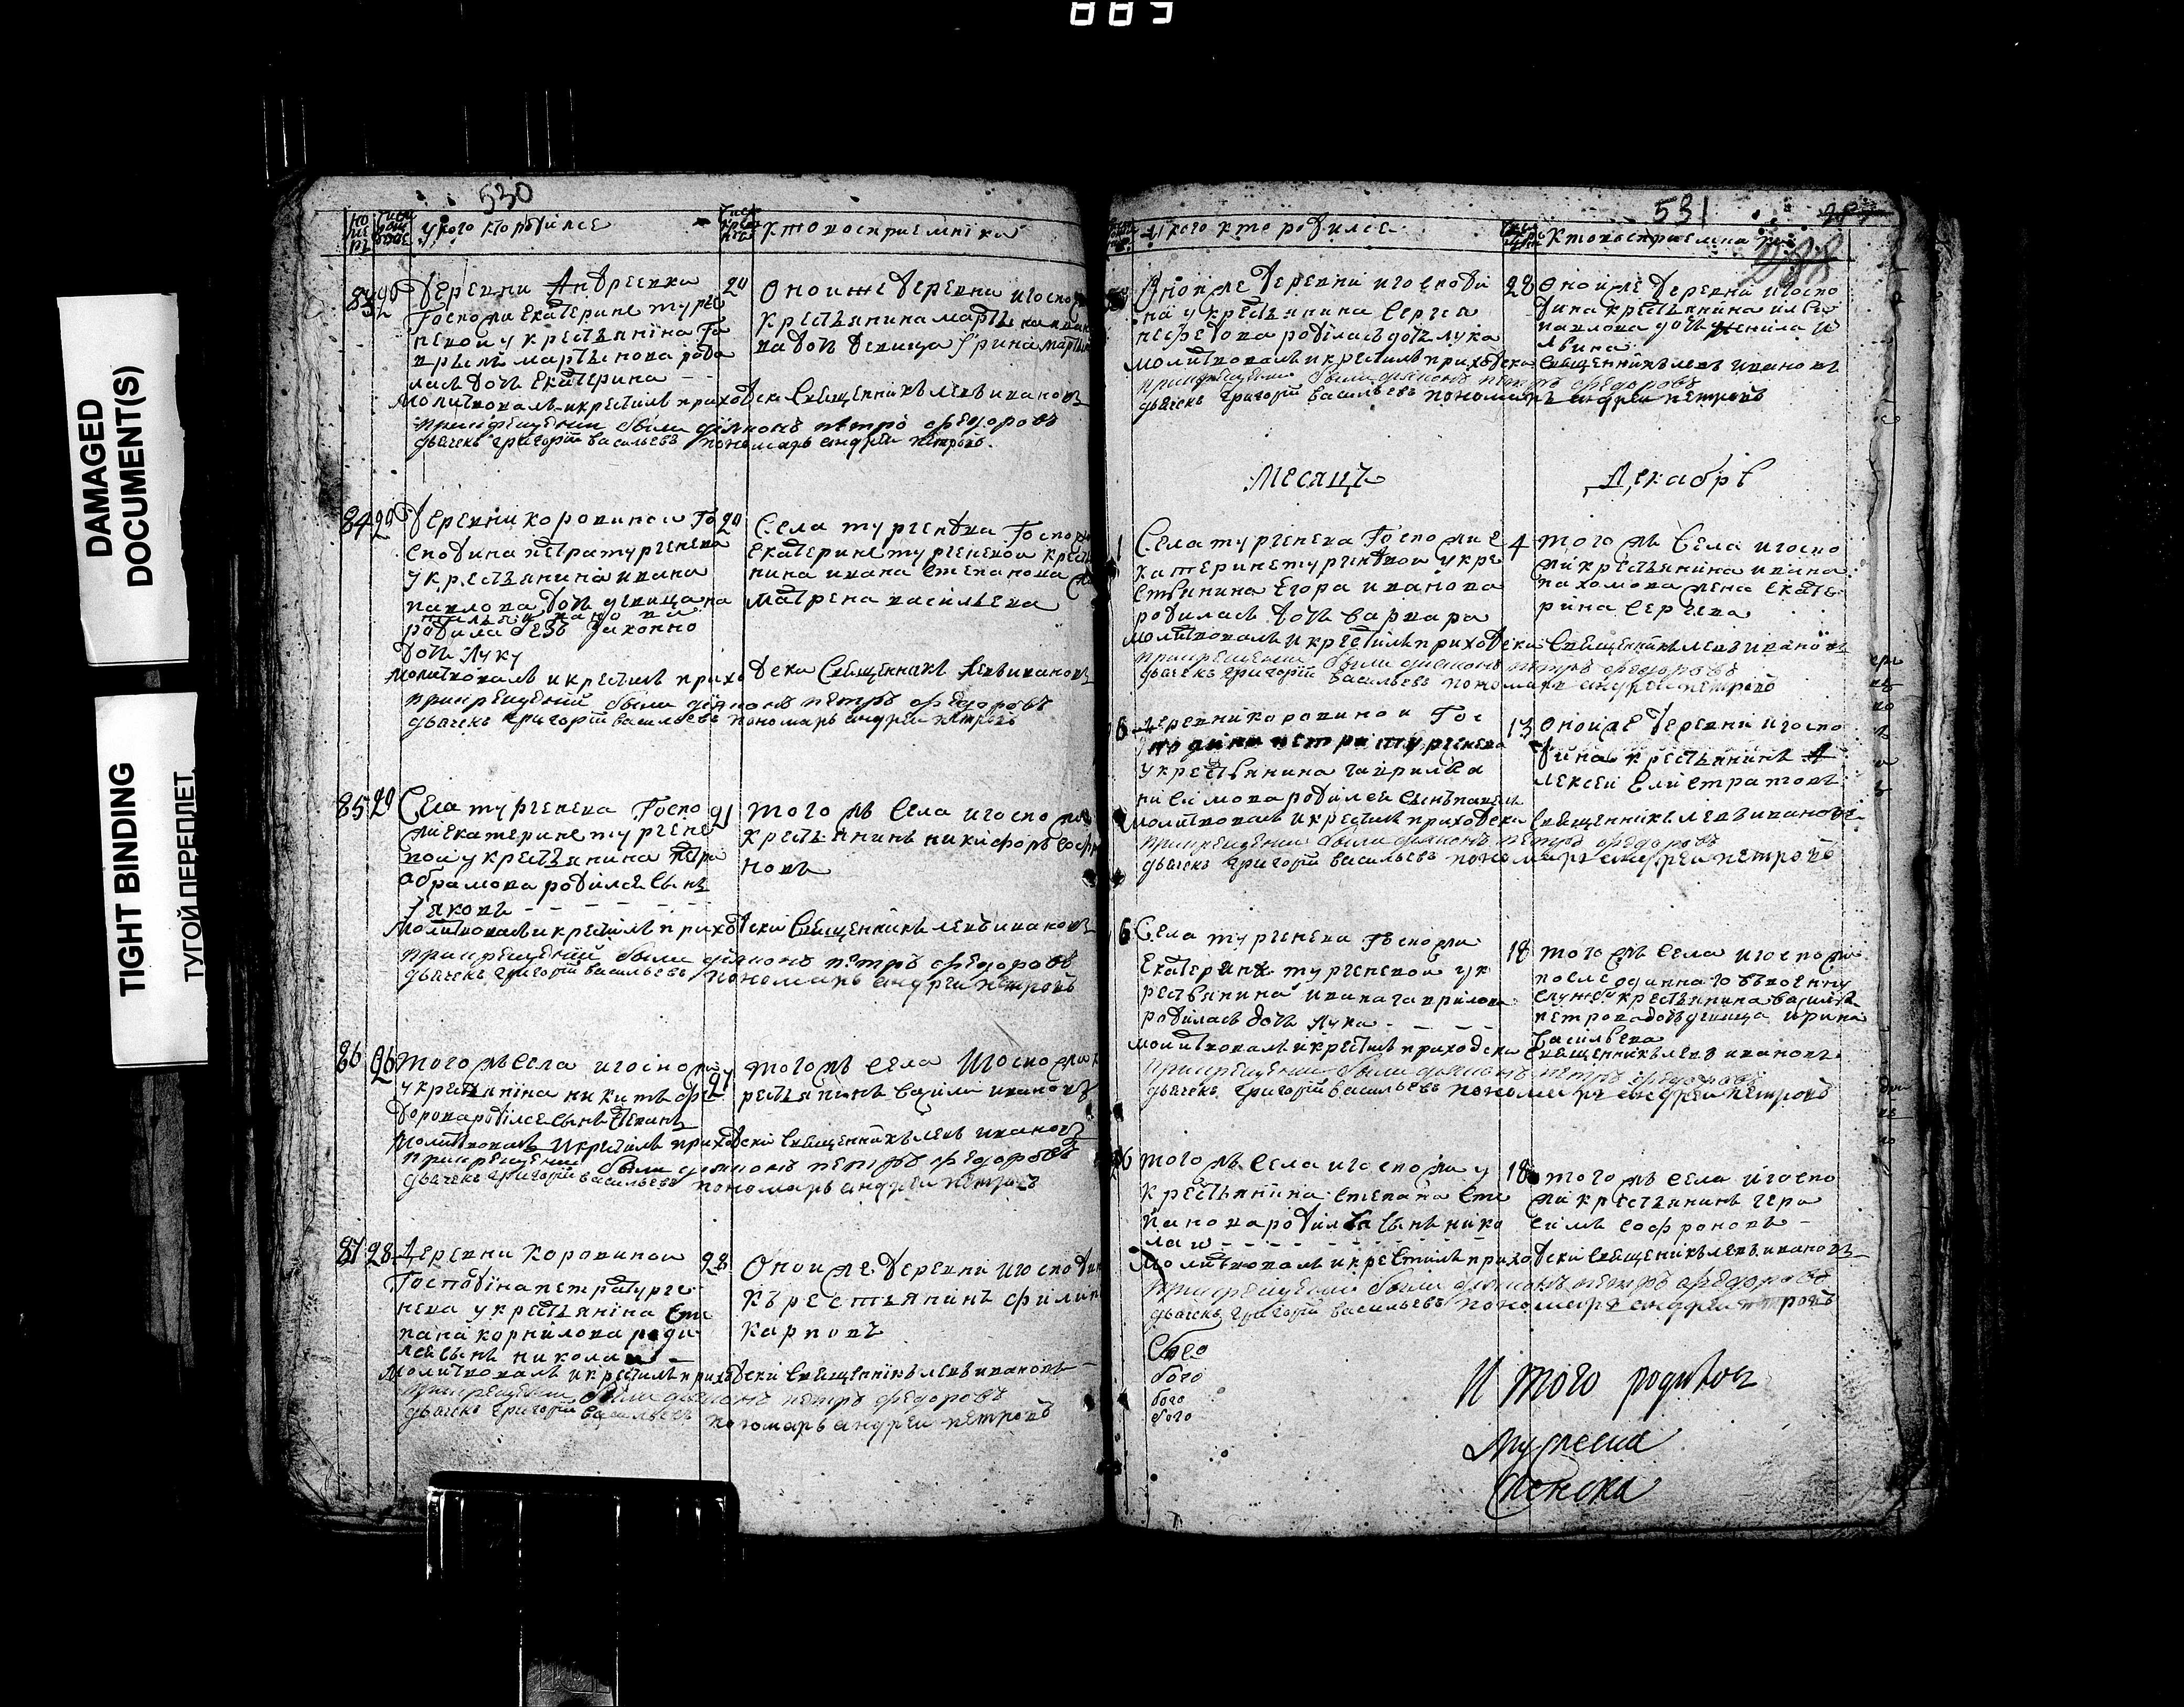 889
DAMAGED
DOCUMENT(S)
TIGHT BINDING
ТУГОЙ ПЕРЕПЛЕТ
530
у кого кто родилсе
кто восприемника
83 20
деревни Андреевка
Госпожи Екатерине турге
невои у крестьянина Га
врила мартьенова роди
лась дочь Екатерина
20
Оноиже деревни и госпожи
крестьянина мартьена
ва дочь девица Ірина
молитвовалъ и крестилъ приходски священникъ левъ ивановъ
при крещении были диаконъ петръ федоровъ
дьячекъ григорій васильевъ пономарь андреи петровъ
84 20
деревни коровинои Го
сподина петра тургенева
у крестьянина ивана
павлова дочь девица
родила без законно
дочь луку
20
Села тургенева Госпожи
Екатерине тургеневои
нина ивана степанова
матрена васильева
молитвовалъ и крестилъ приходски священникъ левъ ивановъ
при крещении были диаконъ петръ федоровъ
дьячекъ григорій васильевъ пономарь андреи петровъ
85 20
Села тургенева Госпо
жи екатерине тургене
вои у крестьянина петра
абрамова родилсе сынъ
яковъ
21
того жъ села и госпожи
крестьянинъ никифоръ
новъ
молитвовалъ и крестилъ приходски священникъ левъ ивановъ
при крещении были диаконъ петръ федоровъ
дьячекъ григорій васильевъ пономарь андреи петровъ
86 26
того жъ села и госпожи
у крестьянина никиты фе
дорова родилсе сынъ степанъ
27
того жъ села и госпожи к
рестьянинъ василеи ивановъ
молитвовалъ и крестилъ приходски священникъ левъ ивановъ
при крещении были диаконъ петръ федоровъ
дьячекъ григорій васильевъ пономарь андреи петровъ
87 28
деревни коровинои
Господина петра турге
нева у крестьянина сте
пана корнилова роди
лсе сынъ николаи
28
Оноиже деревни и господина
кърестьянинъ филипъ
карповъ
молитвовалъ и крестилъ приходски священникъ левъ ивановъ
при крещении были диаконъ петръ федоровъ
дьячекъ григорій васильевъ пономарь андреи петровъ
531
у кого кто родилсе
кто восприемника
Оноиже деревни и господи
на у крестьянина Сергея
нефедова родилась дочь лука
28
Оноиже деревни и госпо
дина крестьянина
павлова дочь
молитвовалъ и крестилъ приходски священникъ левъ ивановъ
при крещении были диаконъ петръ федоровъ
дьячекъ григорій васильевъ пономарь андреи петровъ
Месяцъ Декабрь
1
Села тургенева Госпожи е
катерине тургеневои у кре
стьянина Егора иванова
родилась дочь варвара
4
того жъ села и госпо
жи крестьянина ивана
пахомова жена екате
рина сергеева
молитвовалъ и крестилъ приходски священникъ левъ ивановъ
при крещении были диаконъ петръ федоровъ
дьячекъ григорій васильевъ пономарь андреи петровъ
деревни коровинои Гос
подина петра тургенева
у крестьянина гаврилы а
нисимова родилсе сынъ павелъ
13
Оноиже деревни и госпо
дина крестьянинъ А
лексеи Елистратовъ
молитвовалъ и крестилъ приходски священникъ левъ ивановъ
при крещении были диаконъ петръ федоровъ
дьячекъ григорій васильевъ пономарь андреи петровъ
6
Села тургенева Госпожи
Екатерине тургеневои у к
рестьянина ивана гаврилова
родилась дочь лука
18
того жъ села и госпожи
после отданнаго въ военну
службу крестьянина василья
петрова дочь девица ирина
васильева
молитвовалъ и крестилъ приходски священникъ левъ ивановъ
при крещении были диаконъ петръ федоровъ
дьячекъ григорій васильевъ пономарь андреи петровъ
6
того жъ села и госпожи у
крестьянина степана сте
панова родилсе сынъ нико
лаи
18
того жъ села и госпо
жи крестьянинъ гера
симъ софроновъ
молитвовалъ и крестилъ приходски священникъ левъ ивановъ
при крещении были диаконъ петръ федоровъ
дьячекъ григорій васильевъ пономарь андреи петровъ
Итого родивъ
мужеска
женска